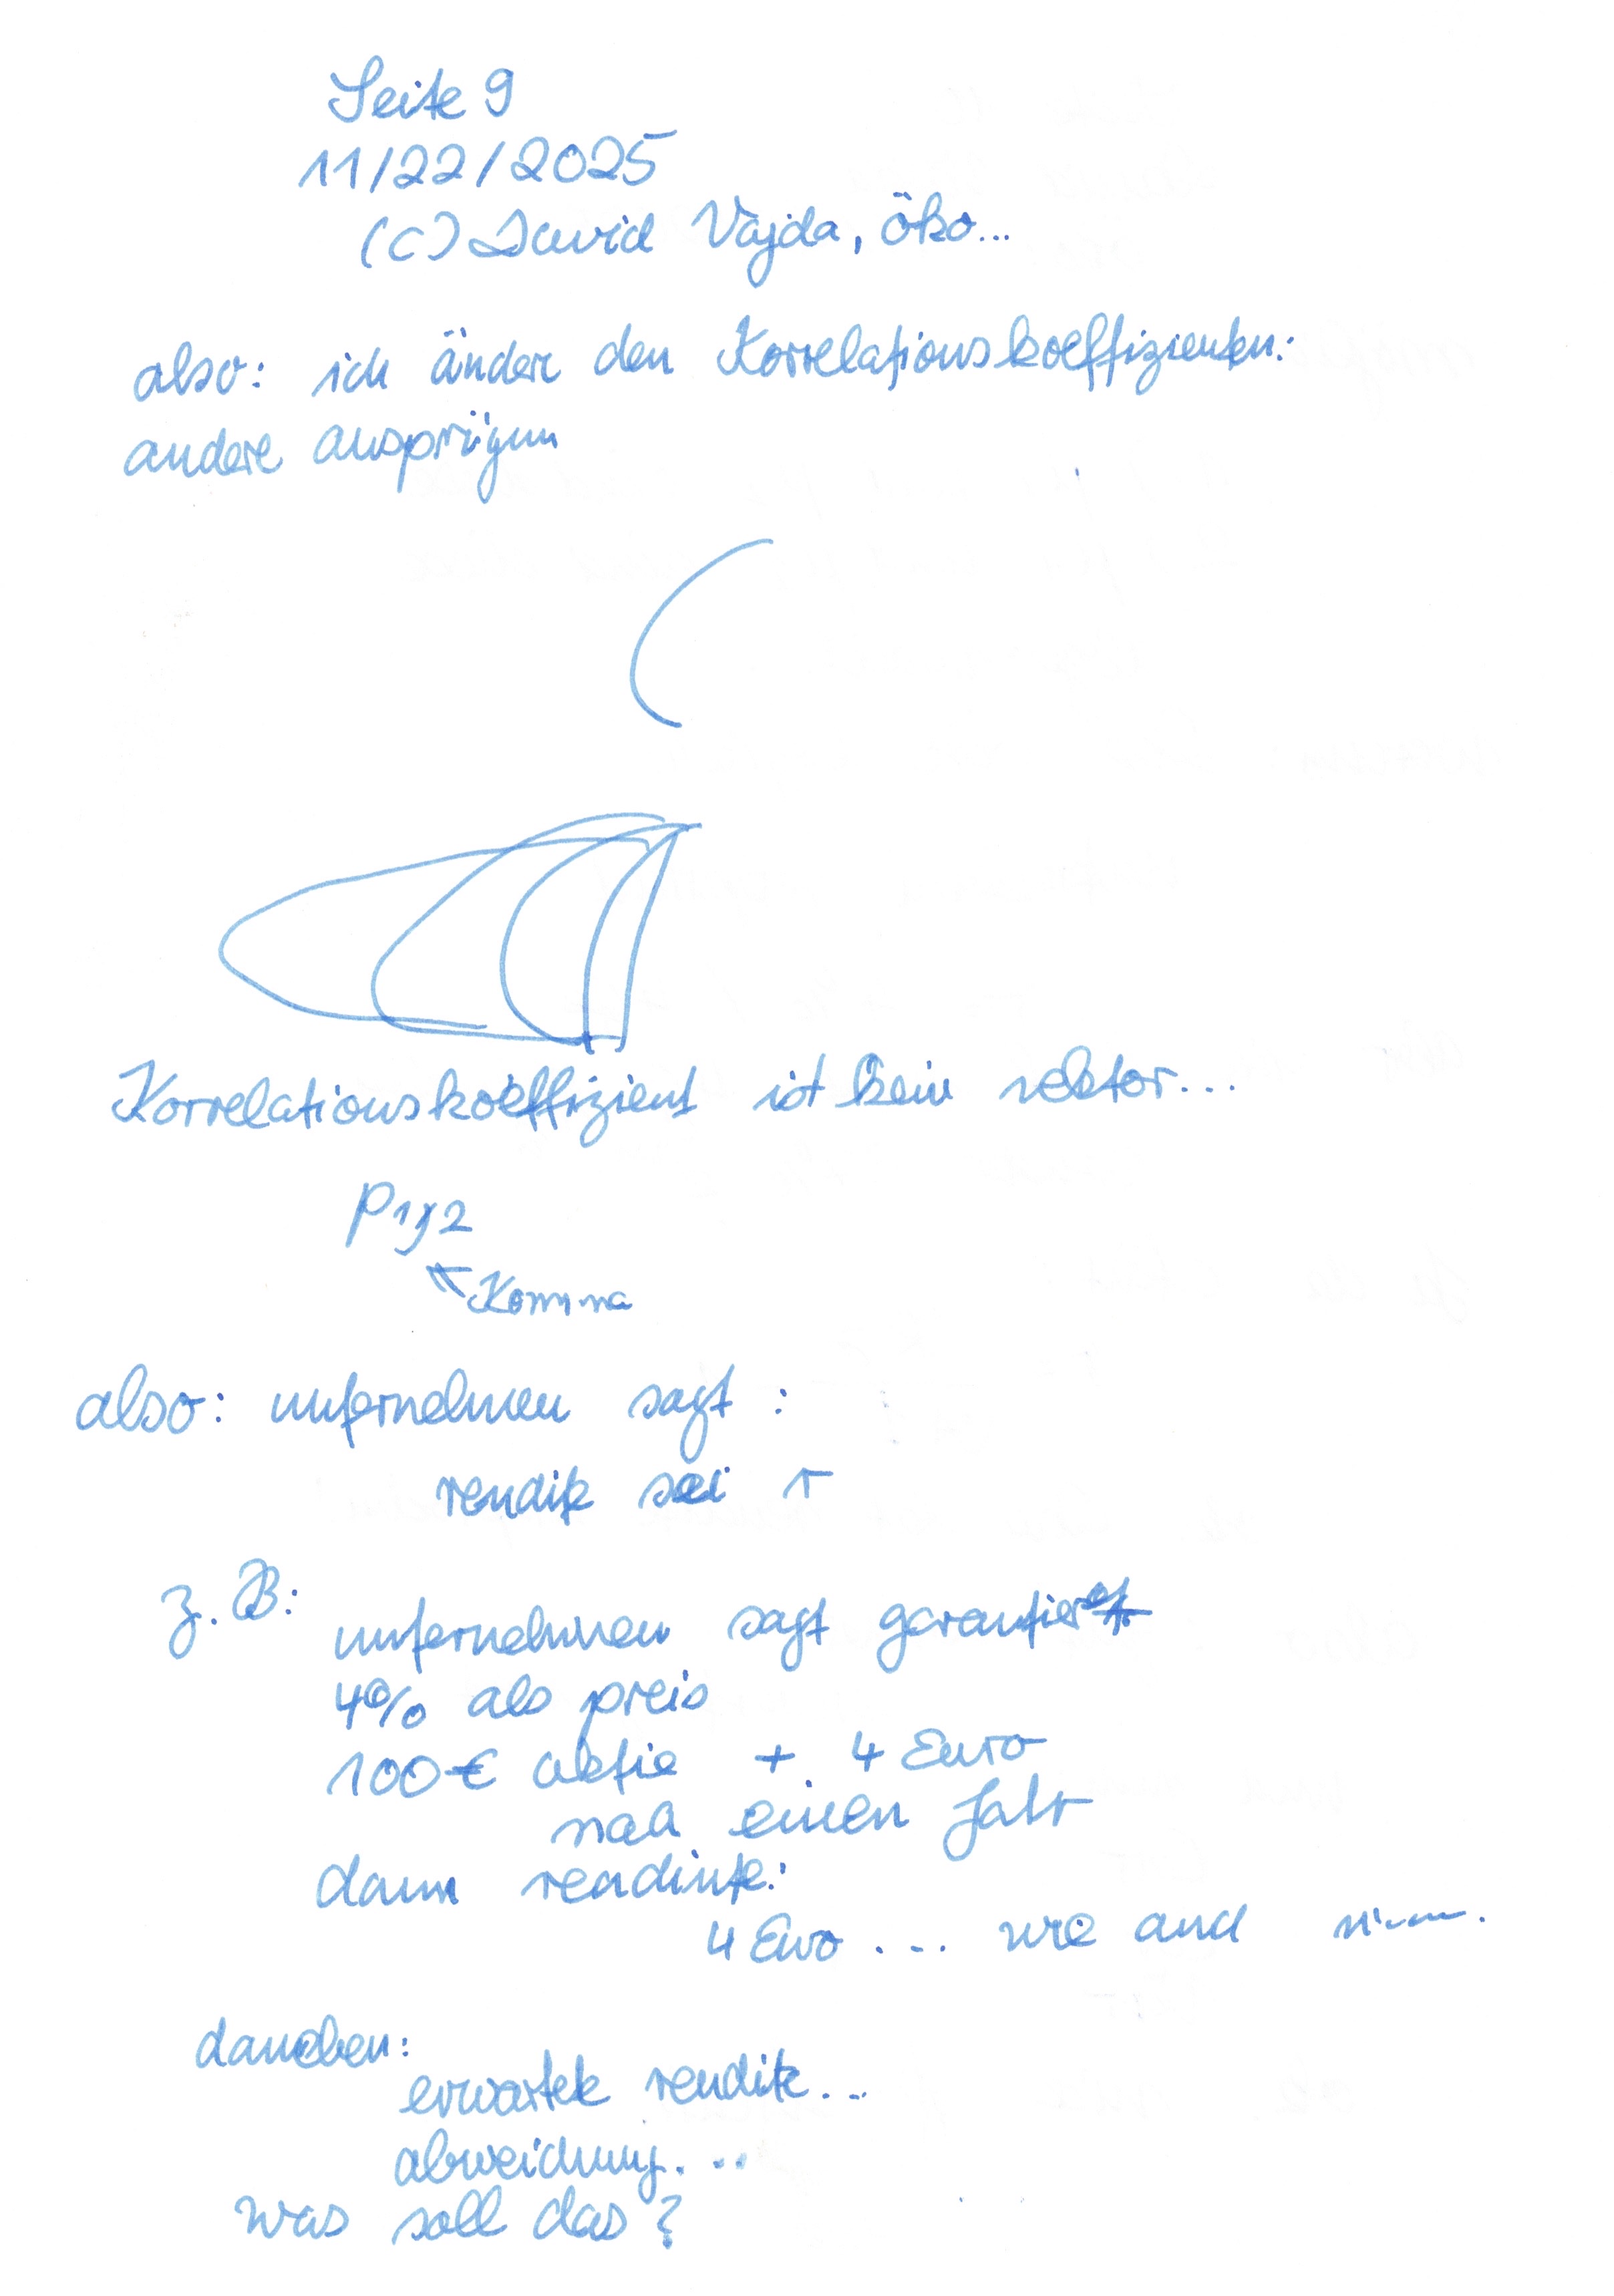 Seite 9
11/22/2025
(c) David Vajda, öko...
also: ich änder den Korrelationskoeffizienten:
andere
Korrelationskoeffizient ist kein vektor...
ρ1,2
Komma
also: unternehmen sagt :
rendite sei r
z.B:
unternehmen sagt garantiert
4% als preis
100€ aktie + 4 Euro
nach einen Jahr
dann rendite:
4 Euro .... wie and
daneben:
erwartete rendite...
abweichung...
was soll das?